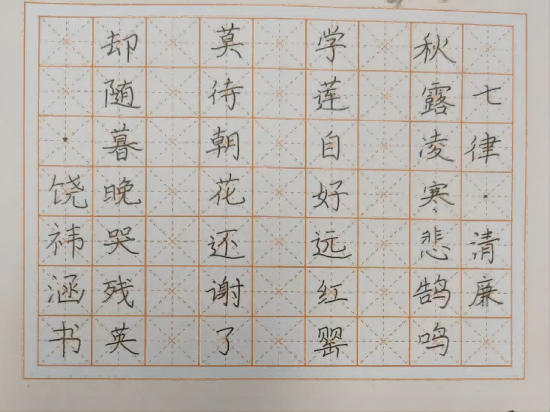 七律·清廉
秋露凌寒悲鹄鸣
学莲自好远红罂
莫待朝花还谢了
却随暮晚哭残英
·饶祎涵书